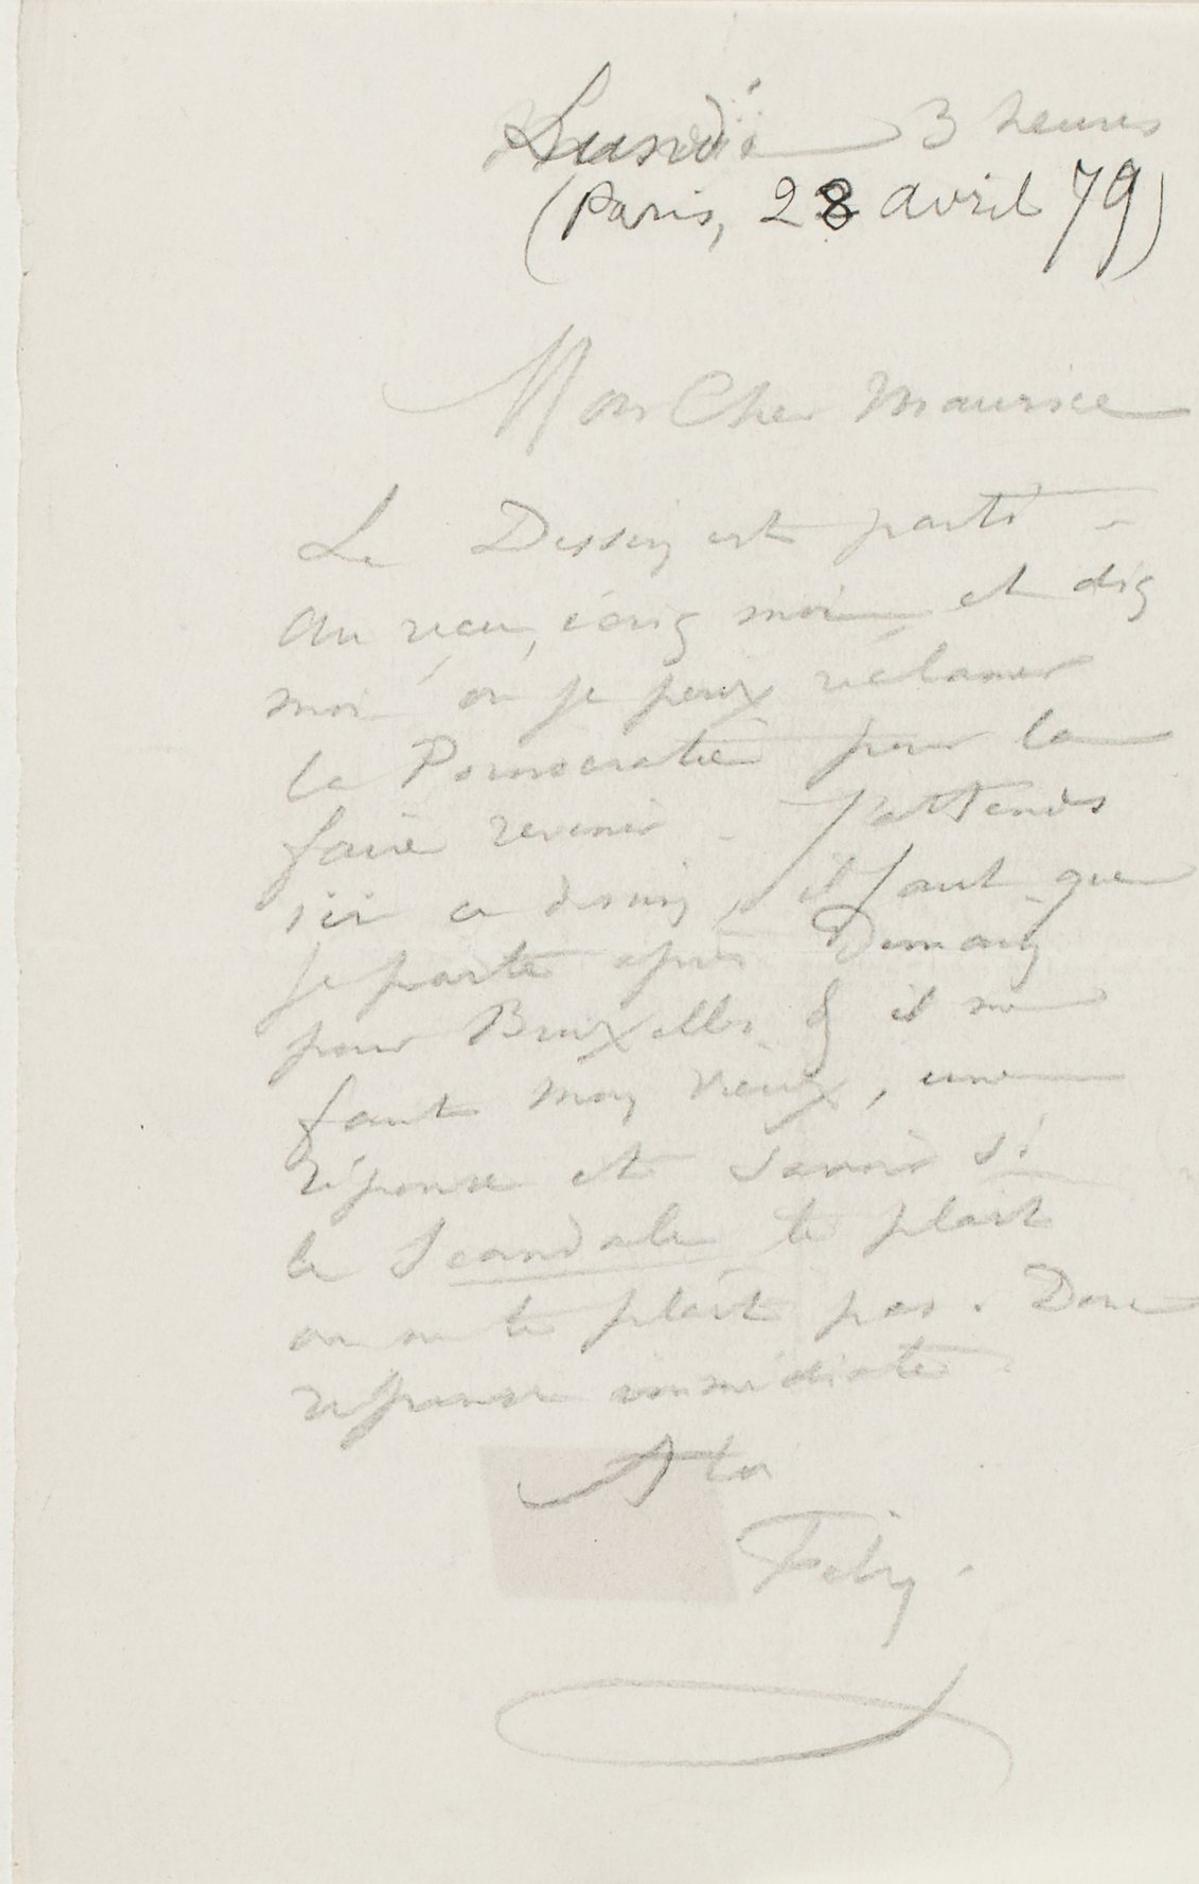 Lundi 3 heures
(Paris, 28 avril 79)
Mon Cher Maurice
Le Dessin est parti -
au reçu, écris moi et dis
moi où je peux réclamer
la Pornocratie pour la
faire revenir - J'attends
ici ce dessin, il faut que
je parte après Demain
pour Bruxelles & il me
faut mon vieux, une
réponse et savoir si
le Scandale te plait
ou ne te plaît pas. Donc
réponse immédiate.
A toi
Fély.